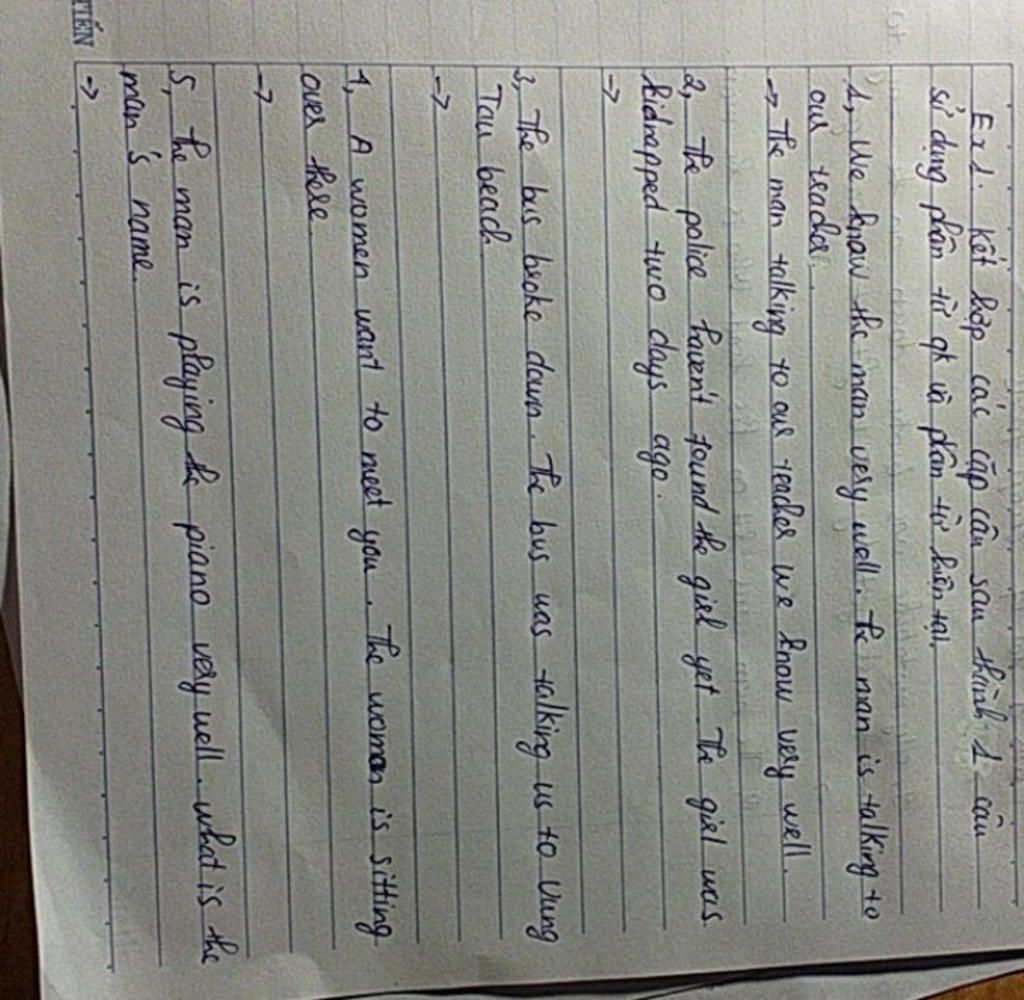 TIẾN
Ex1. Kết hợp các cặp câu sau thành 1 câu
sử dụng phân từ qk và phân từ hiện tại.
1, We know the man very well. The man is talking to
our teacher.
-> The man talking to our teacher we know very well.
2, The police haven't found the girl yet. The girl was
kidnapped two days ago.
->
3, The bus broke down. The bus was talking us to Vung
Tau beach
->
4, A women want to meet you. The woman is sitting
over there
->
5, the man is playing the piano very well. what is the
man's name.
->